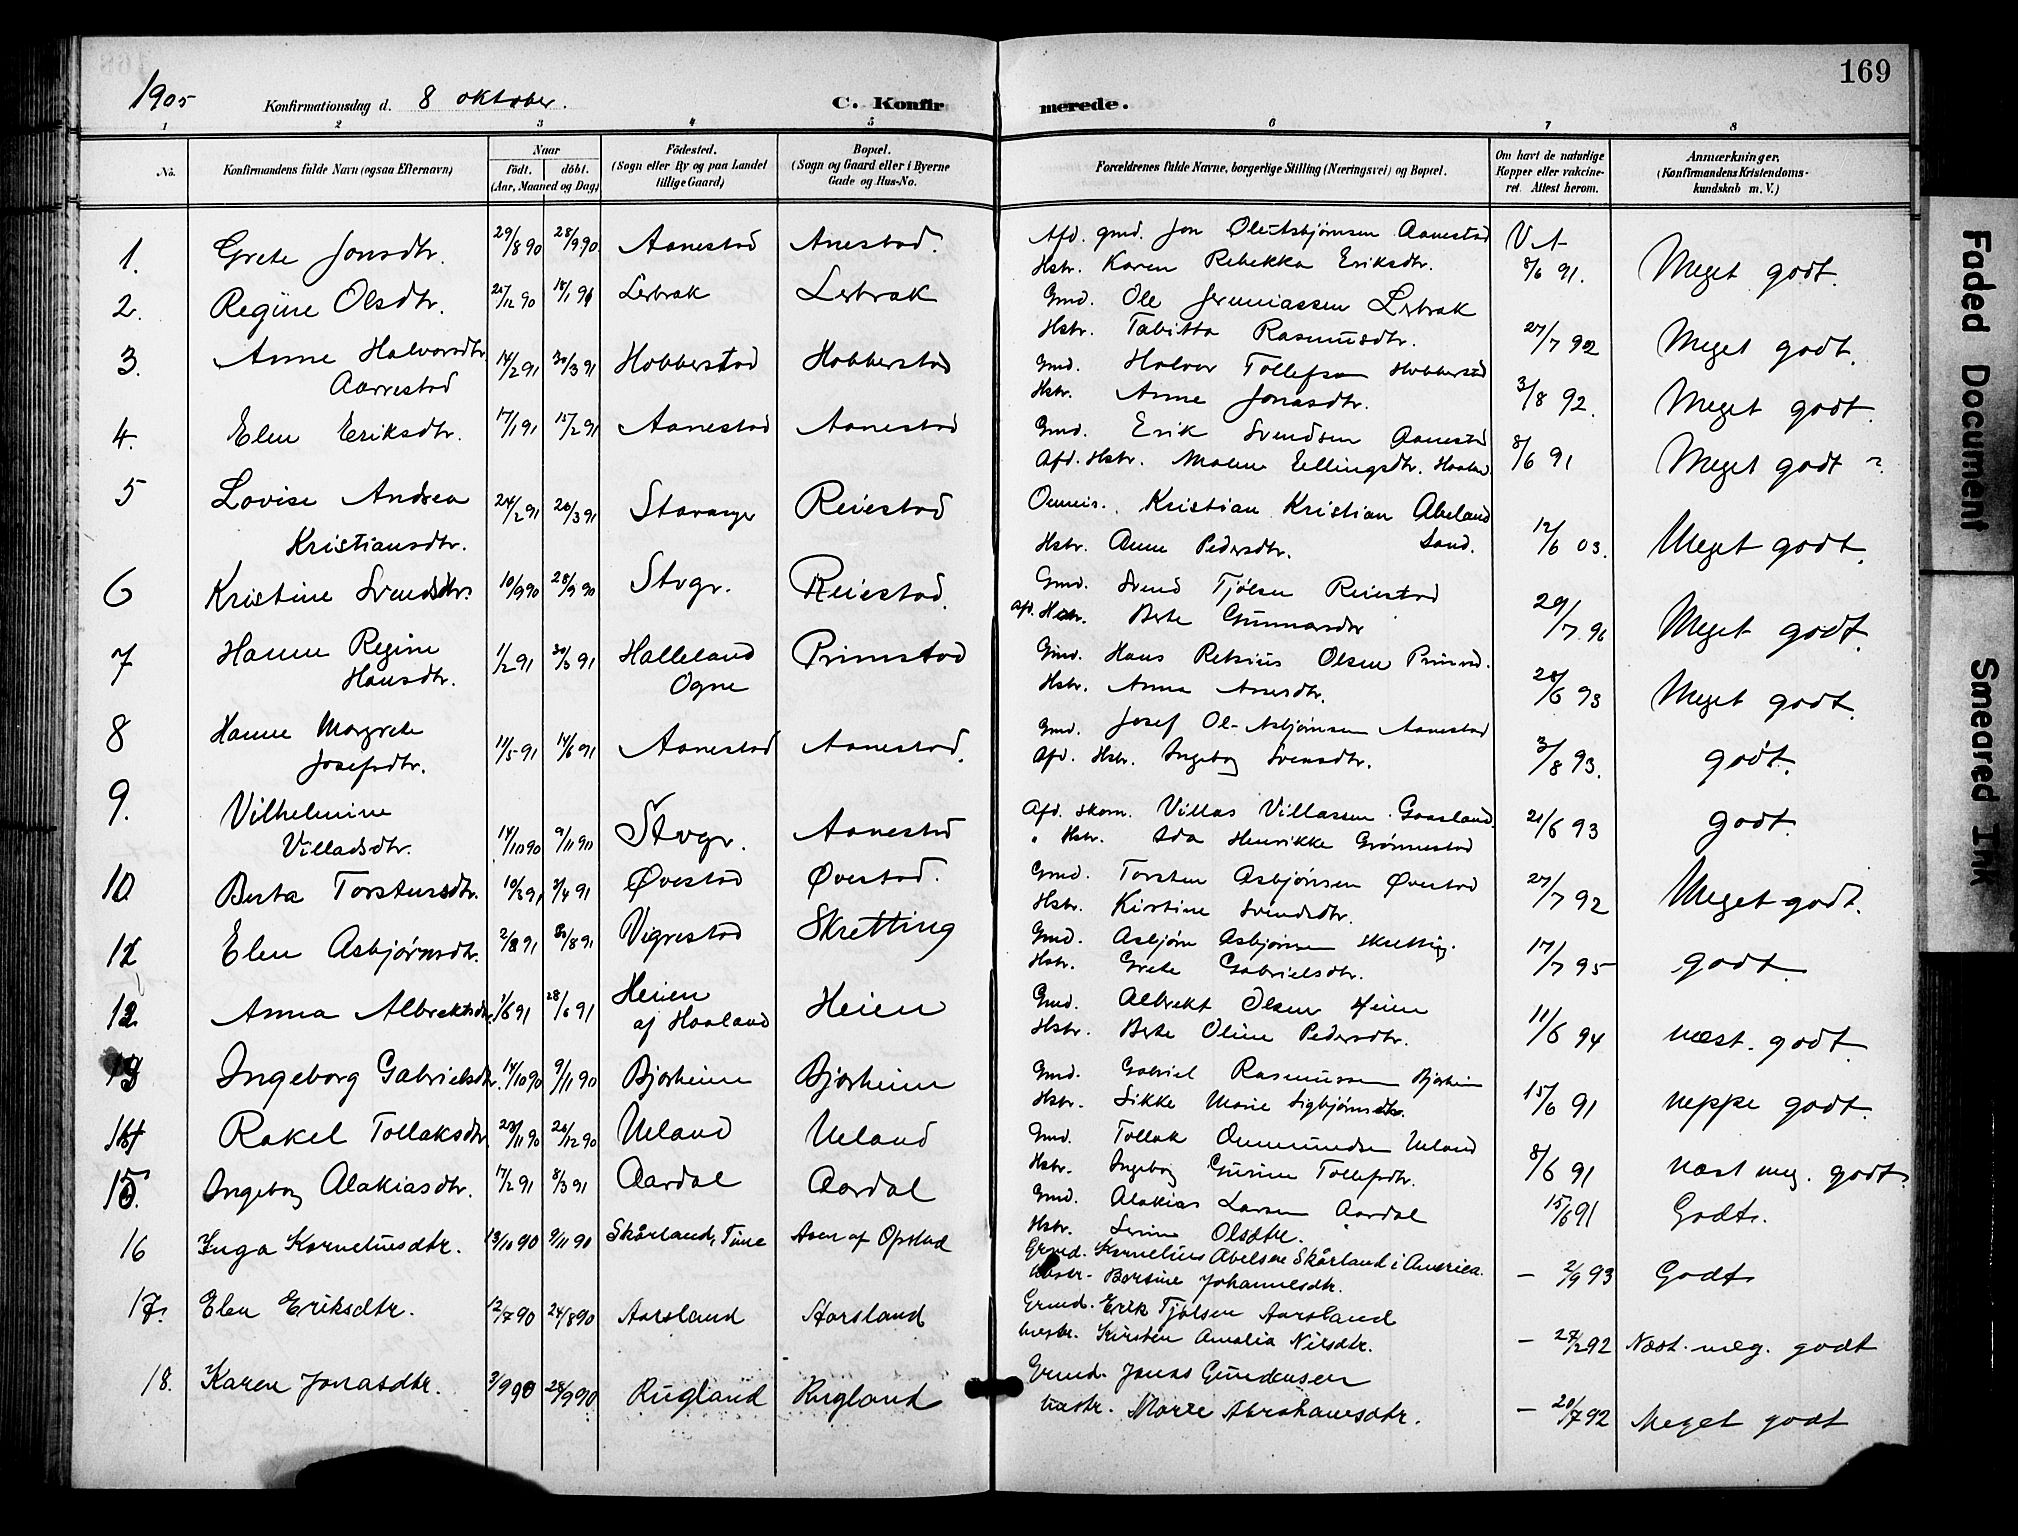 169
1905 Konfirmationsdag d. 8 oktober. C. Konfirmerede.
1 2 3 4 5 6 7 8
No. Konfirmandens fulde Navn (ogsaa Efternavn) Naar födt. döbt. (Aar, Maaned og Dag) Födested. (Sogn eller By og paa Landet tillige Gaard) Bopæl. (Sogn og Gaard eller i Byerne Gade og Hus-No. Forældrenes fulde Navne, borgerlige Stilling (Næringsvei) og Bopæl. Om havt de naturlige Kopper eller vakcineret. Attest herom. Anmærkninger. (Konfirmandens Kristendomskundskab m. V.)
1. Grete Jonsdtr. 29/8 90 28/9 90 Aanestad Anestad. Afd. gmd. Jon Ole Asbjørnsen Aanestad
Hstr. Karen Rebekka Eriksdtr. 8/6 91. Meget godt.
2. Regine Olsdtr. 18/1 91 Lerbrak Lerbrak Gmd. Ole Jermiassen Lerbrak
Hstr. Tabitta Rasmusdtr. 27/7 92 Meget godt.
3. Anne Halvorsdtr. Aarrestad 14/2 91 30/3 91 Hobberstad Hobberstad Gmd. Halvor Tollefsen Hobberstad
Hstr. Anne Jonasdtr. 3/8 92. Meget godt.
4. Elen Eriksdtr. 17/1 91 15/2 91 Aanestad Aanestad Gmd. Erik Svendsen Aanestad
Afd. Hstr. Malene Ellingsdtr. 8/6 91 Meget godt
5 Lovise Andrea Kristiansdtr. 24/2 91 20/3 91 Stavanger Reiestad Kristian Kristian Abeland
Hstr. Anne Pedersdtr. Sand. 12/6 03. Meget godt.
6 Kristine Svendsdtr. 10/9 90 28/9 90 Stvgr. Reiestad. Gmd. Svend Tjølsen Reiestad
afd. Hstr. Berte Gunnarsdtr 29/7 96 Meget godt.
7 Hanne Regine Hansdtr. 1/2 91 30/3 91 Halleland Ogne Primstad Gmd. Hans Retsius Olsen
Hstr. Anna 28/6 93 Meget godt.
8 Hanne Margrete Josefsdtr. 11/5 91 14/6 91 Aanestad Aanestad. Gmd. Josef Ol- Asbjørnsen Aanestad
Afd. Hstr. Ingebog Svensdtr. 3/8 93. godt.
9. Vilhelmine Villadsdtr. 14/10 90 9/11 90 Stvgr. Aanestad Afd. skom. Villas Villassen Gaasland.
" Hstr. Ada Henrikke Grønnestad 21/6 93 godt.
10 Berta Torstensdtr. 10/3 91 3/4 91 Øvestad Øvestad. Gmd. Torsten Asbjørnsen Øvestad
Hstr. Kirstine Svendsdtr. 27/7 92 Meget godt.
11 Elen Asbjørnsdtr. 2/8 91 30/8 91 Vigrestad Skretting Gmd. Asbjørn Asbjørnsen Skretting.
Hstr. Grete Gabrielsdtr. 17/7 95 godt
12 Anna Albrektsdtr. 1/6 91 28/6 91 Heien af Haaland Heien Gmd. Albrekt Olsen Heien
Hstr. Berte Oline Pedersdtr. 11/6 94 næst. godt.
13 Ingeborg Gabrielsdtr. 14/10 90 9/11 90 Bjorheim Bjorheim Gmd. Gabriel Rasmussen Bjorheim
Hstr. Sikke Marie Sigbjørnsdtr. 15/6 91 neppe godt.
14 Rakel Tollaksdtr. 23/11 90 26/12 90 Ueland Ueland Gmd. Tollak Ommundsen Ueland
Hstr. Ingebog Gurine Tollefsdtr. 8/6 91 næst meg. godt.
15 Ingebog Alakiasdtr. 17/2 91 8/3 91 Aardal Aardal Gmd. Alakias Larsen Aardal
Hstr. Serine Olsdtr. 15/6 91 Godt.
16 Inga Kornelinsdtr. 13/10 90 9/11 90 Skårland, Time Aven af Opstad Grmd. Kornelius Abelsen Skårland i America.
hustr. Bertine Johannesdtr. — 2/9 93 Godt
17. Elen Eriksdtr. 12/7 90 24/8 90 Aarsland Aarsland Grmd. Erik Tjølsen Aarsland
hustr. Kirsten Amalia Nilsdtr. — 27/2 92 Næst. meg. godt
18. Karen Jonasdtr. 3/9 90 28/9 90 Rugland Rugland Grmd. Jonas Gundersen
hustr. Marie Abrahamsdtr. — 20/7 92 Meget godt
Faded Document
Smeared Ink